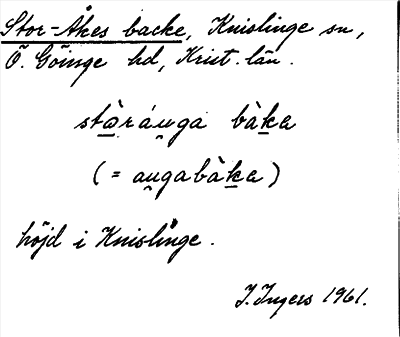 Stor-Åkes backe, Knislinge sn,
Ö. Göinge hd, Krist. län.
stàráuga bàka
(= augabàka)
höjd i Knislinge.
I. Ingers 1961.